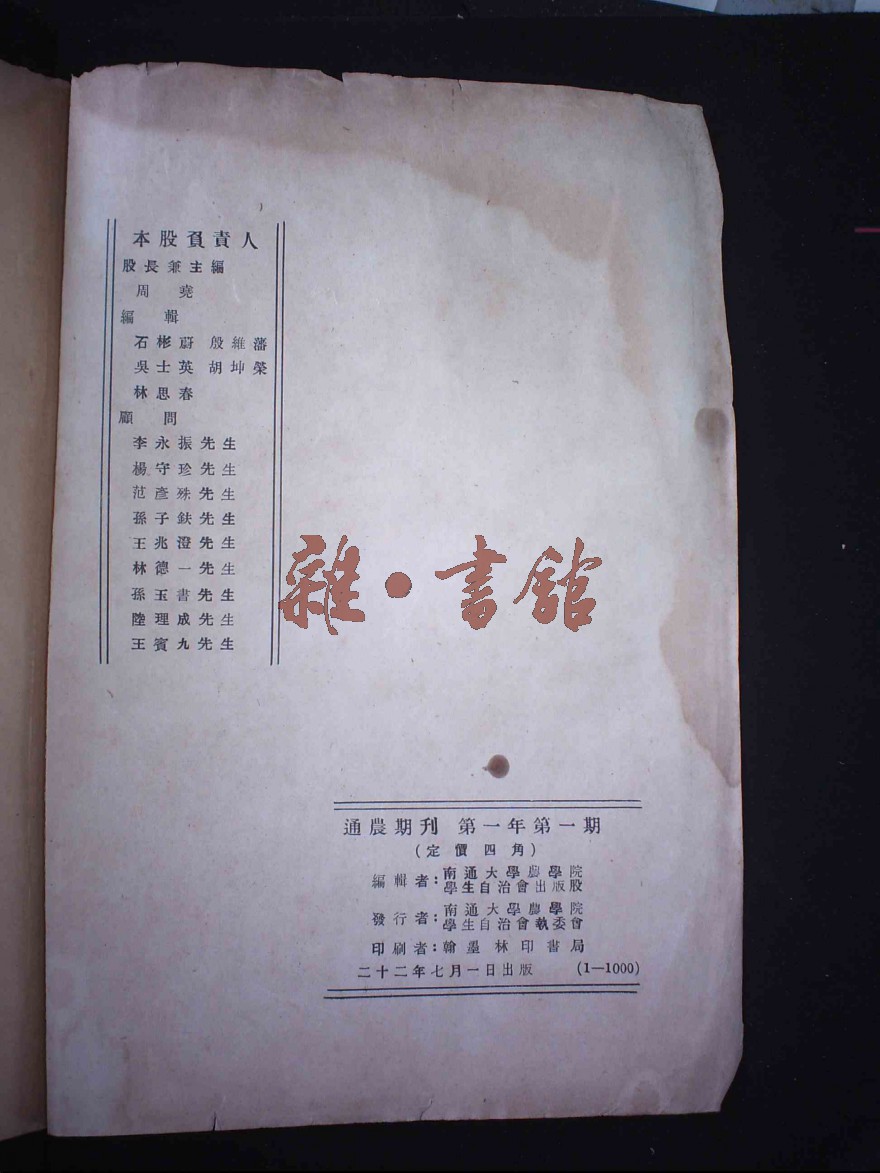 本股負責人
股長兼主編
周堯
編輯
石彬蔚 殷維藩
吳士英 胡坤榮
林思春
顧問
李永振先生
楊守珍先生
范彥殊先生
孫子鈇先生
王兆澄先生
林德一先生
孫玉書先生
陸理成先生
王賓九先生
雜·書館
通農期刊 第一年第一期
(定價四角)
編輯者:南通大學農學院
學生自治會出版股
發行者:南通大學農學院
學生自治會執委會
印刷者:翰墨林印書局
二十二年七月一日出版 (1—1000)